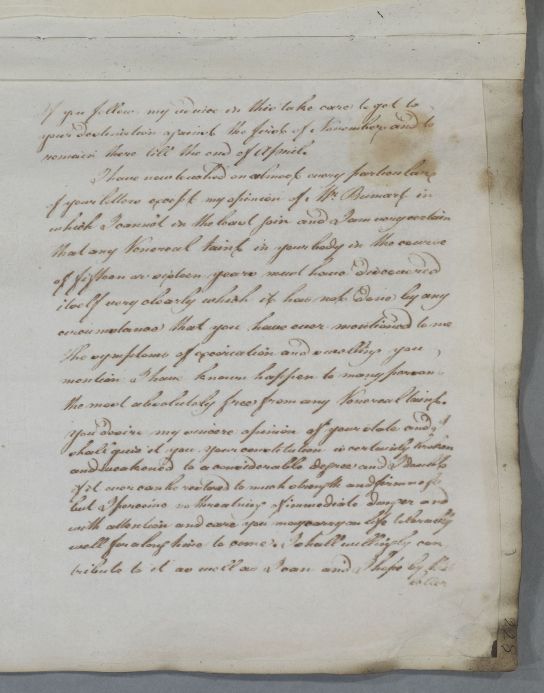 If you follow my advice in this take care to get to
your destination against the first of November and to
remain there till the end of April.
I have now treated on almost every particular
of your letters except my opinion of Mr. in
which I cannot in the least join and I am very certain
that any Venereal taint in your body in the course
of fifteen or sixteen years must have discovered
itself very clearly which it has not done by any
circumstance that you have ever mentioned to me
The symptoms of and you
mention I have known happen to many persons
the most absolutely free from any Venereal taint.
you desire my sincere opinion of your state and I
shall give it you your constitution is certainly broken
and weakened to a considerable degree and I doubt
if it ever can be restored to much strength and firmness
but I perceive no threatning of immediate danger and
with attention and care you may carry on life tolerably
well for a long time to come. I shall willingly con
tribute to it as well as I can and I hope by this
letter
225